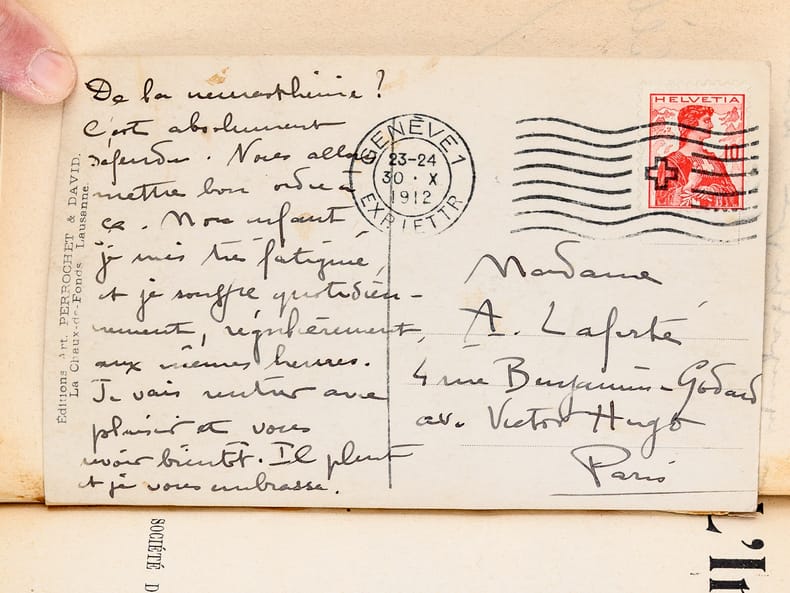 De la neurasthénie ?
C'est absolument
défendu. Nous allons
mettre bon ordre à
ça. Mon enfant
je suis très fatigué,
et je souffre quotidien-
nement, régulièrement,
aux mêmes heures.
Je vais rentrer avec
plaisir et vous
revoir bientôt. Il pleut
et je vous embrasse.
Éditions Art. PERROCHET & DAVID.
La Chaux-de-Fonds, Lausanne.
GENÈVE 1
23-24
30 · X
1912
EXP. LETTR
HELVETIA
Madame
A. Laferté
4 rue Benjamin-Godard
av. Victor Hugo
Paris
SOCIÉTÉ D